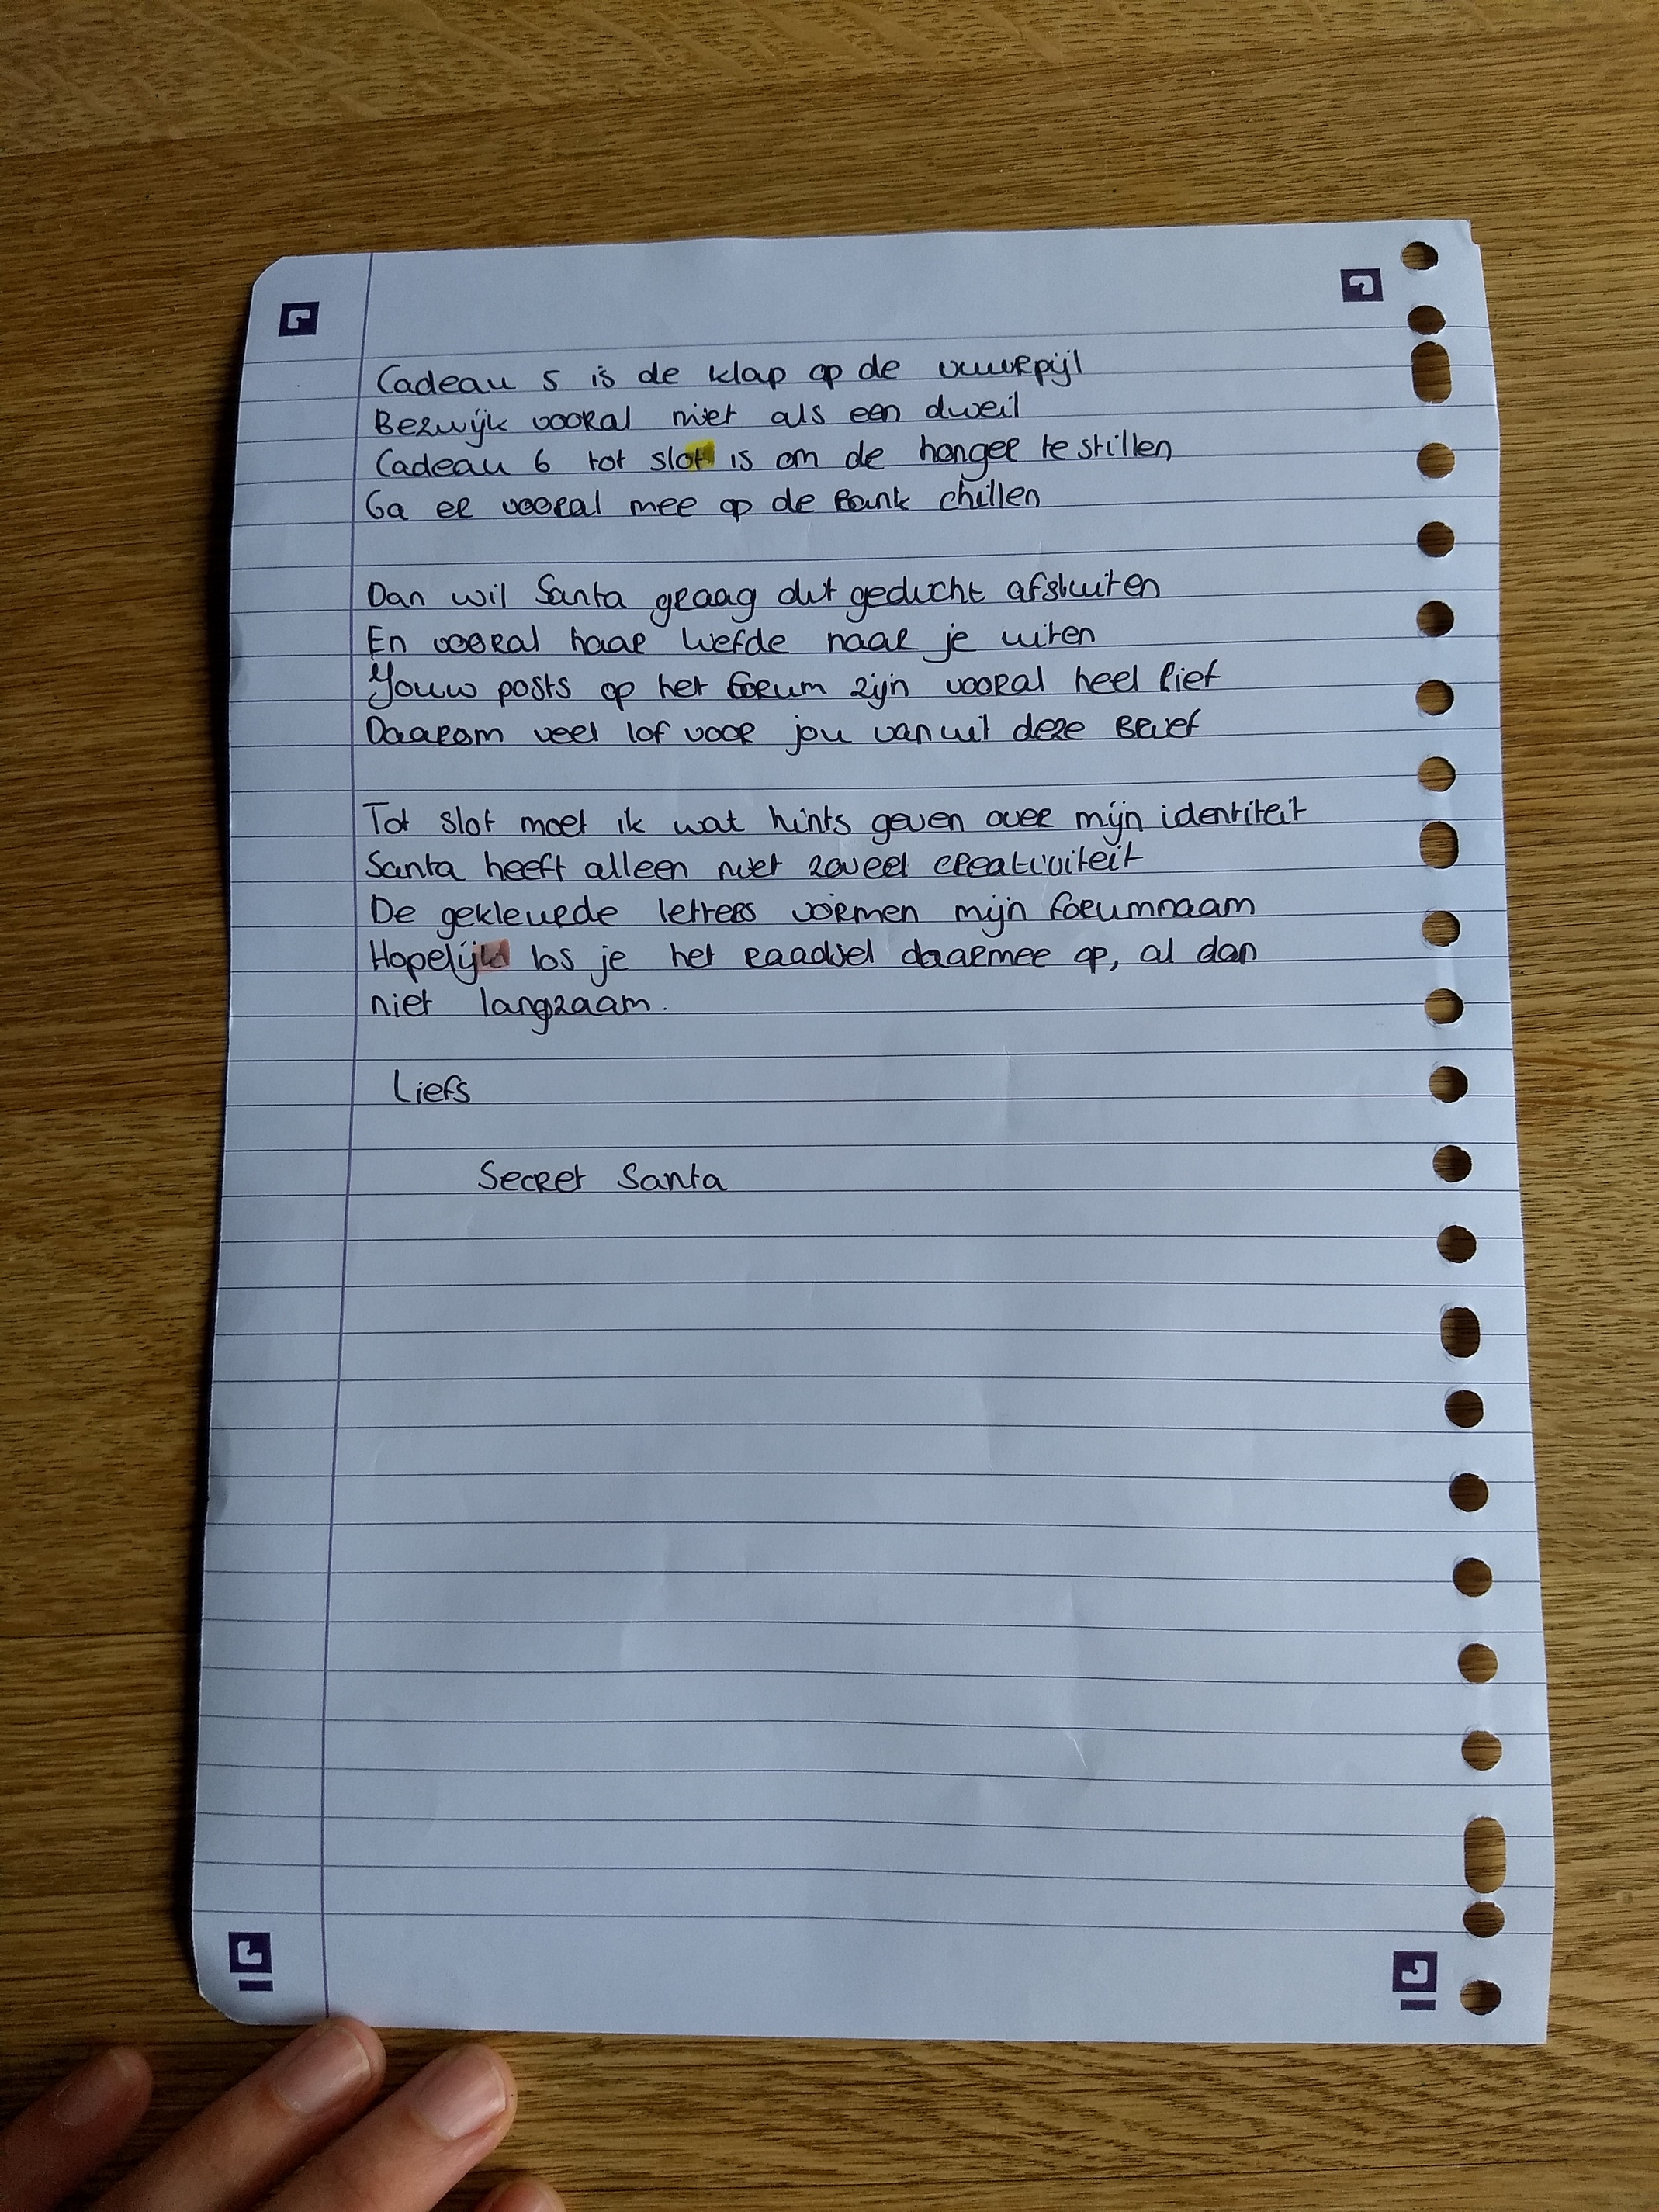 Cadeau 5 is de klap op de vuurpijl
Bezwijk vooral niet als een dweil
Cadeau 6 tot slot is om de honger te stillen
Ga er vooral mee op de bank chillen
Dan wil Santa graag dit gedicht afsluiten
En vooral haar liefde naar je uiten
Jouw posts op het forum zijn vooral heel lief
Daarom veel lof voor jou vanuit deze brief
Tot slot moet ik wat hints geven over mijn identiteit
Santa heeft alleen niet zoveel creativiteit
De gekleurde letters vormen mijn forumnaam
Hopelijk los je het raadsel daarmee op, al dan
niet langzaam.
Liefs
Secret Santa